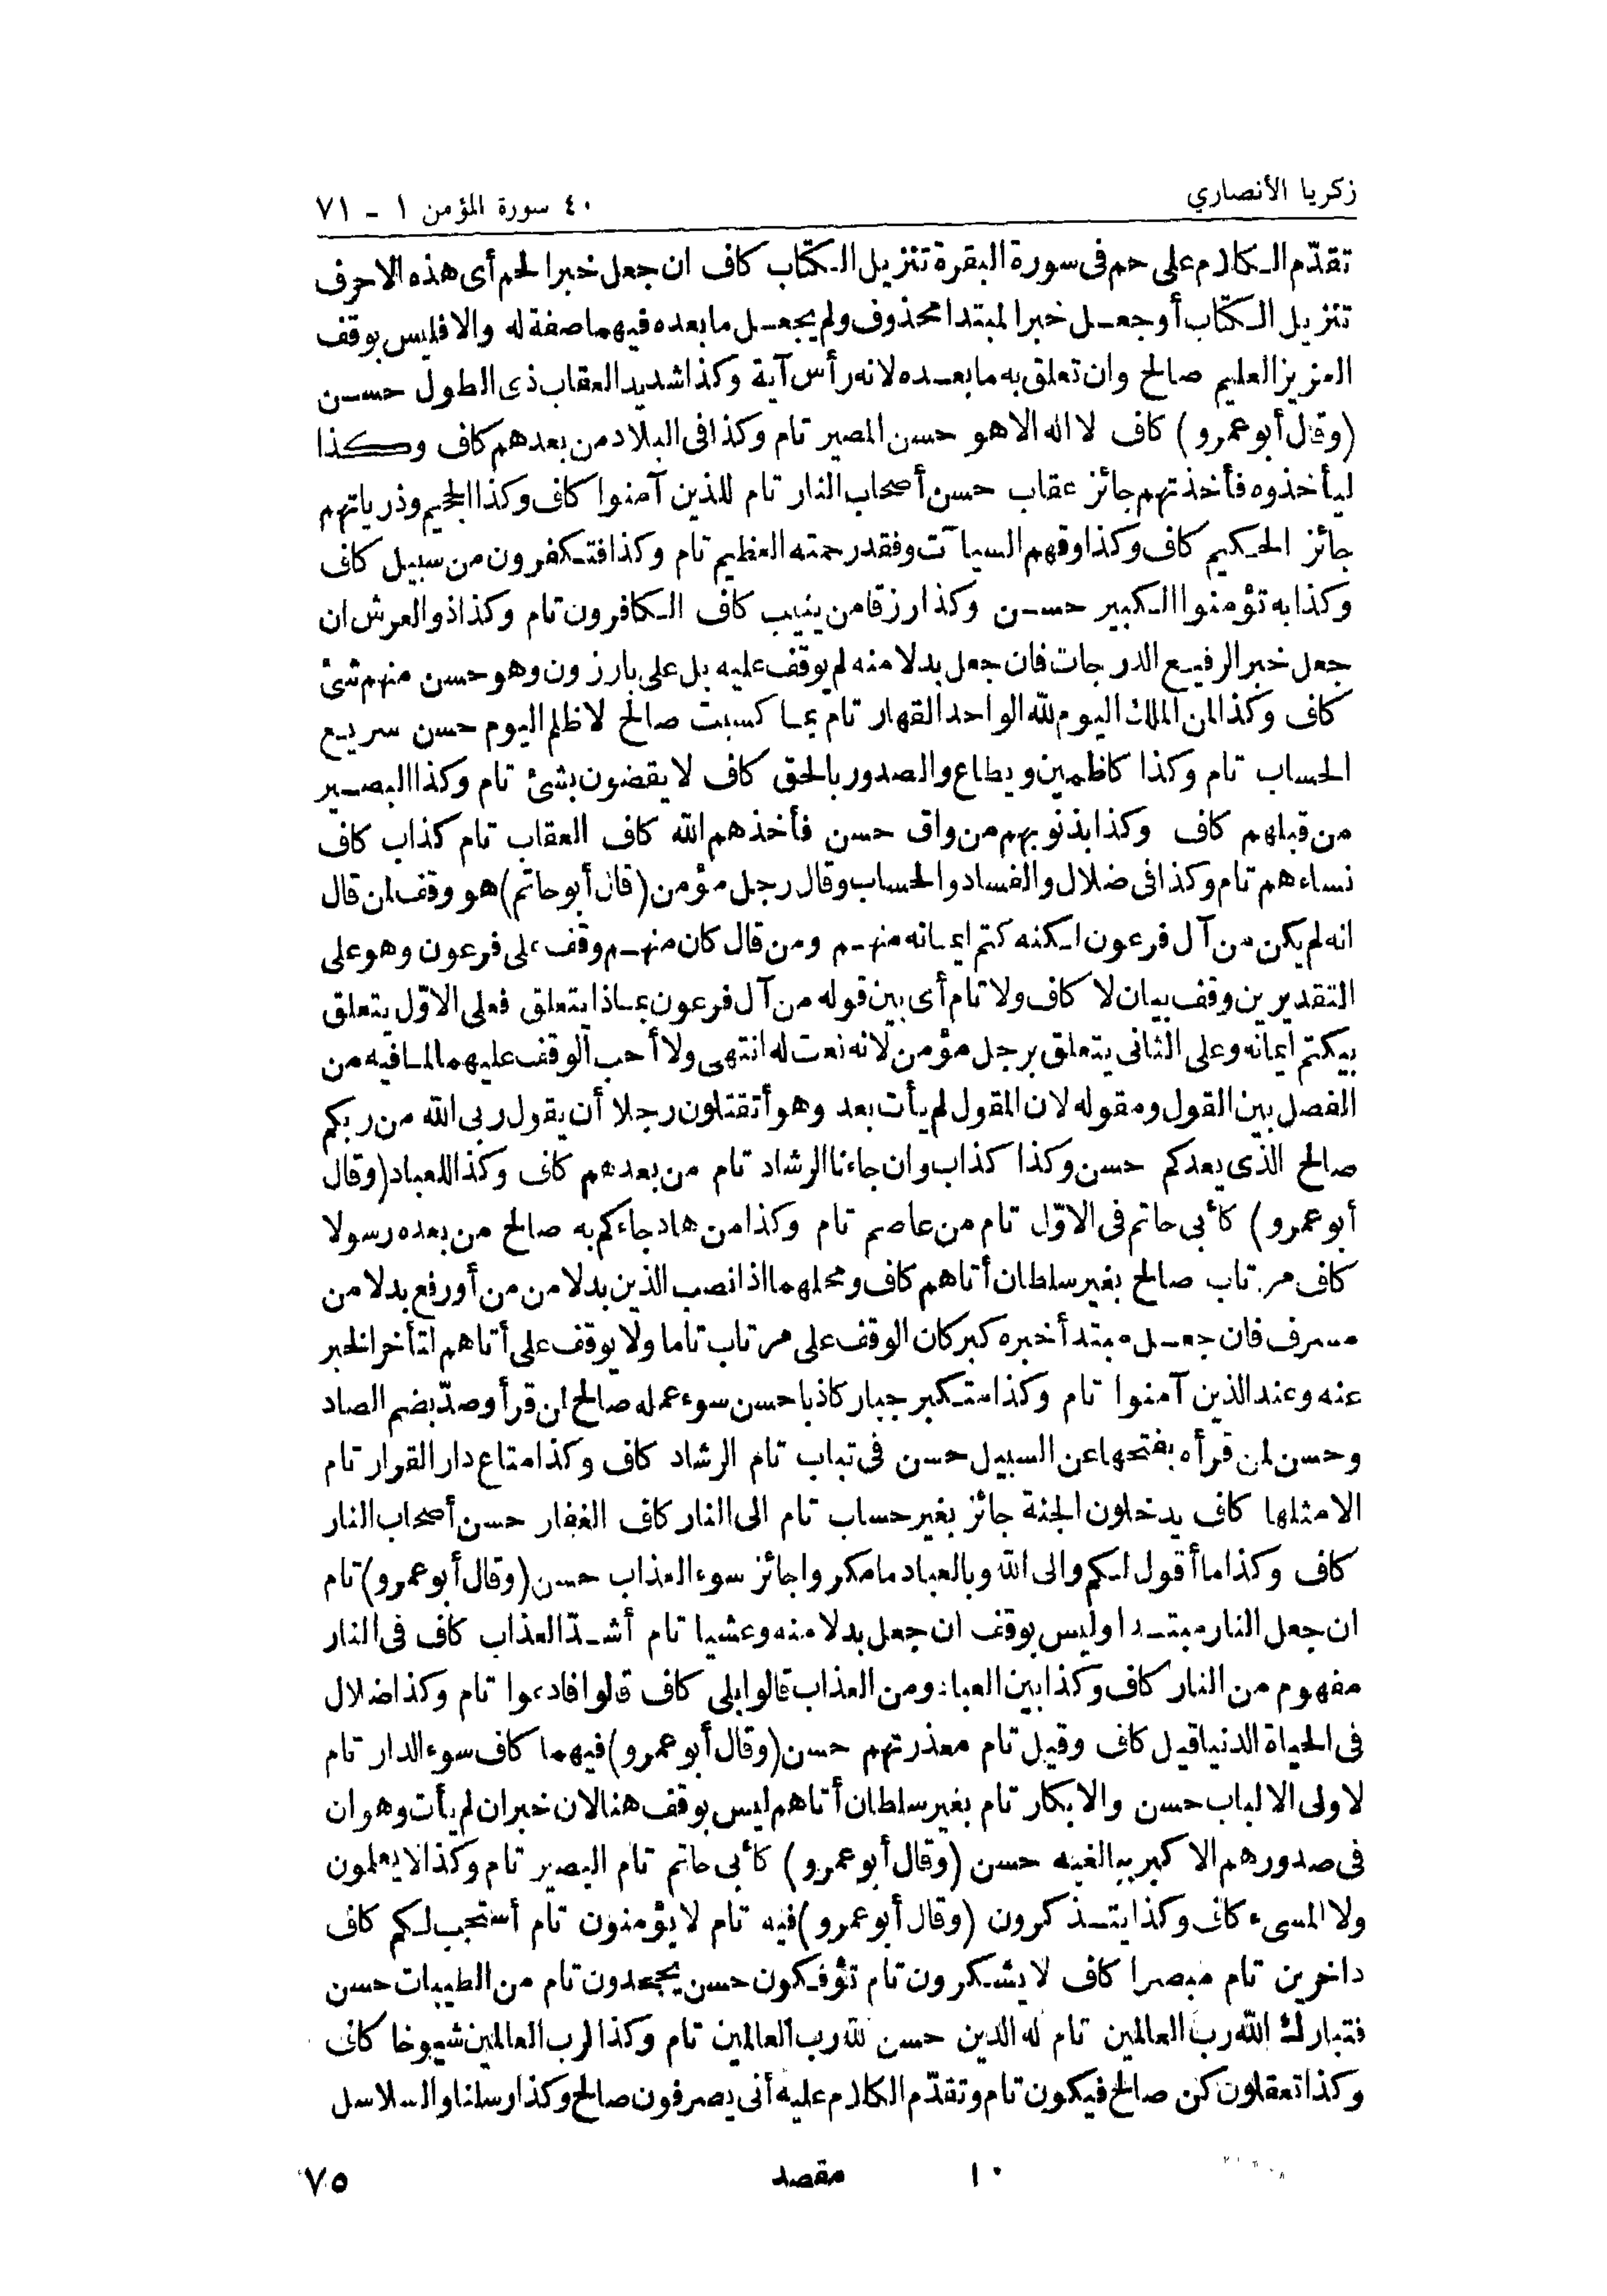 زكريا الأنصاري
٤٠ سورة المؤمن ١ - ٧١
تقدّم الكلام على حم فى سورة البقرة تنزيل الكتاب كاف ان جعل خبرا لحم أى هذه الاحرف
تنزيل الكتاب أو جعل خبرا لمبتدا محذوف ولم يجعل ما بعده فيهما صفة له والا فليس بوقف
العزيز العليم صالح وان تعلق به ما بعده لانه رأس آية وكذا شديد العقاب ذى الطول حسن
(وقال أبو عمرو) كاف لا اله الا هو حسن المصير تام وكذا فى البلاد من بعدهم كاف وكذا
ليأخذوه فأخذتهم جائز عقاب حسن أصحاب النار تام للذين آمنوا كاف وكذا الجحيم وذرياتهم
جائز الحكيم كاف وكذا وقهم السيآت وفقد رحمته العظيم تام وكذا فتكفرون من سبيل كاف
وكذا به تؤمنوا الكبير حسن وكذا رزقا من ينيب كاف الكافرون تام وكذا ذو العرش ان
جعل خبر الرفيع الدرجات فان جعل بدلا منه لم يوقف عليه بل على بارزون وهو حسن منهم شئ
كاف وكذا لمن الملك اليوم لله الواحد القهار تام بما كسبت صالح لا ظلم اليوم حسن سريع
الحساب تام وكذا كاظمين ويطاع والصدور بالحق كاف لا يقضون بشئ تام وكذا البصير
من قبلهم كاف وكذا بذنوبهم من واق حسن فأخذهم الله كاف العقاب تام كذاب كاف
نساءهم تام وكذا فى ضلال والفساد والحساب وقال رجل مؤمن (قال أبو حاتم) هو وقف لمن قال
انه لم يكن من آل فرعون لكنه كتم ايمانه منهم ومن قال كان منهم وقف على فرعون وهو على
التقديرين وقف بيان لا كاف ولا تام أى بين قوله من آل فرعون بماذا يتعلق فعلى الاوّل يتعلق
بيكتم ايمانه وعلى الثانى يتعلق برجل مؤمن لانه نعت له انتهى ولا أحب الوقف عليهما لما فيه من
الفصل بين القول ومقوله لان المقول لم يأت بعد وهو أتقتلون رجلا أن يقول ربى الله من ربكم
صالح الذى يعدكم حسن وكذا كذاب وان جاءنا الرشاد تام من بعدهم كاف وكذا للعباد (وقال
أبو عمرو) كأبى حاتم فى الاوّل تام من عاصم تام وكذا من هاد جاءكم به صالح من بعده رسولا
كاف مرتاب صالح بغير سلطان أتاهم كاف ومحلهما اذا نصب الذين بدلا من من أو رفع بدلا من
مسرف فان جعل مبتدأ خبره كبر كان الوقف على مرتاب تاما ولا يوقف على أتاهم لتأخر الخبر
عنه وعند الذين آمنوا تام وكذا متكبر جبار كاذبا حسن سوء عمله صالح لمن قرأ وصدّ بضم الصاد
وحسن لمن قرأه بفتحها عن السبيل حسن فى تباب تام الرشاد كاف وكذا متاع دار القرار تام
الا مثلها كاف يدخلون الجنة جائز بغير حساب تام الى النار كاف الغفار حسن أصحاب النار
كاف وكذا ما أقول لكم والى الله وبالعباد ما مكروا جائز سوء العذاب حسن (وقال أبو عمرو) تام
ان جعل النار مبتدا وليس بوقف ان جعل بدلا منه وعشيا تام أشدّ العذاب كاف فى النار
مفهوم من النار كاف وكذا بين العباد ومن العذاب قالوا بلى كاف قالوا فادعوا تام وكذا ضلال
فى الحياة الدنيا قيل كاف وقيل تام معذرتهم حسن (وقال أبو عمرو) فيهما كاف سوء الدار تام
لاولى الالباب حسن والابكار تام بغير سلطان أتاهم ليس بوقف هنا لان خبر ان لم يأت وهو ان
فى صدورهم الا كبر ببالغيه حسن (وقال أبو عمرو) كأبى حاتم تام البصير تام وكذا لا يعلمون
ولا المسىء كاف وكذا يتذكرون (وقال أبو عمرو) فيه تام لا يؤمنون تام أستجب لكم كاف
داخرين تام مبصرا كاف لا يشكرون تام تؤفكون حسن يجحدون تام من الطيبات حسن
فتبارك الله رب العالمين تام له الدين حسن لله رب العالمين تام وكذا لرب العالمين شيوخا كاف
وكذا تعقلون كن صالح فيكون تام وتقدّم الكلام عليه أنى يصرفون صالح وكذا رسلنا والسلاسل
١٠ مقصد
٧٥